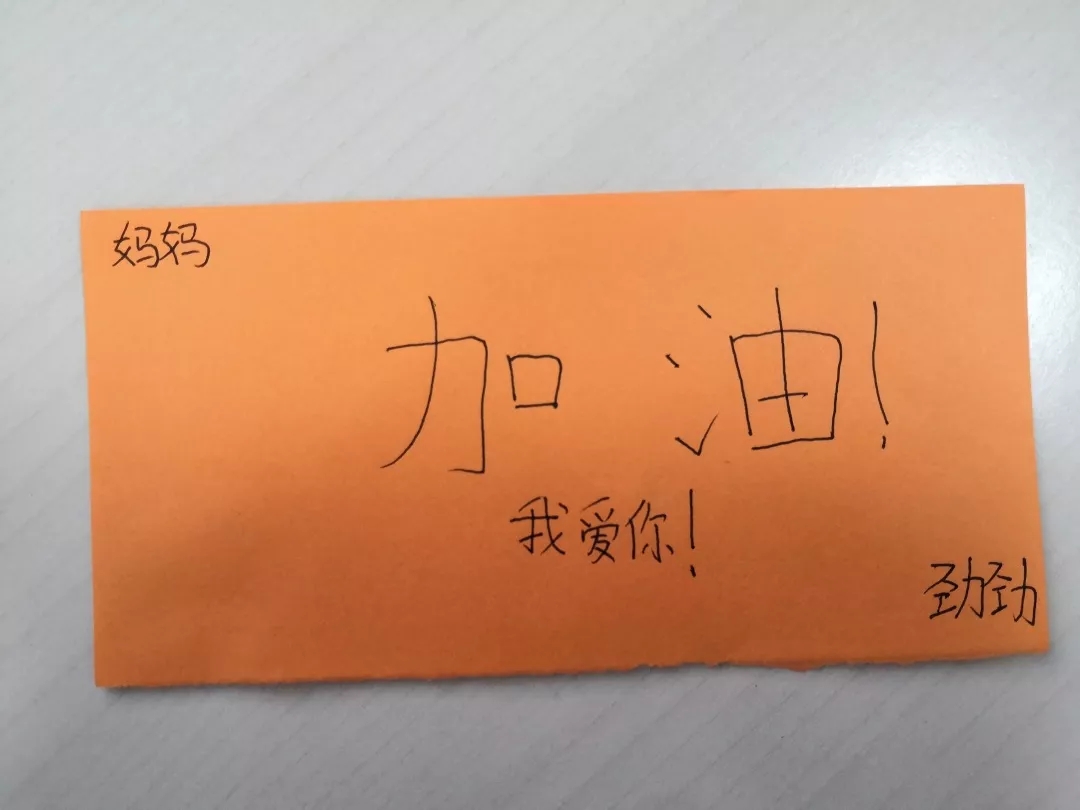 妈妈
加油!
我爱你!
劲劲